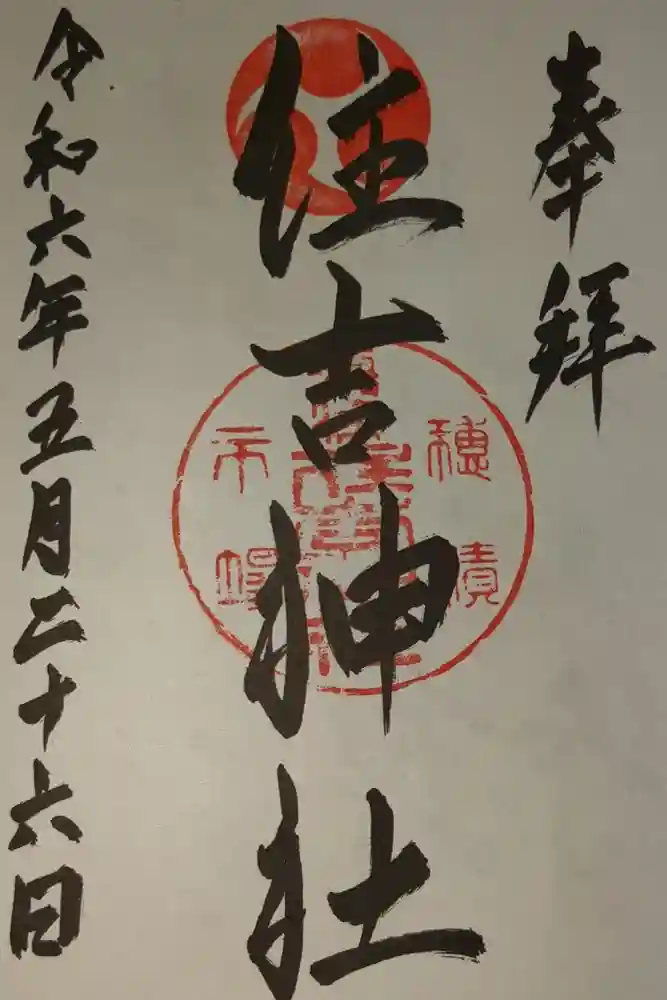 奉拜
住吉神社
穂積
市場
令和六年五月二十六日